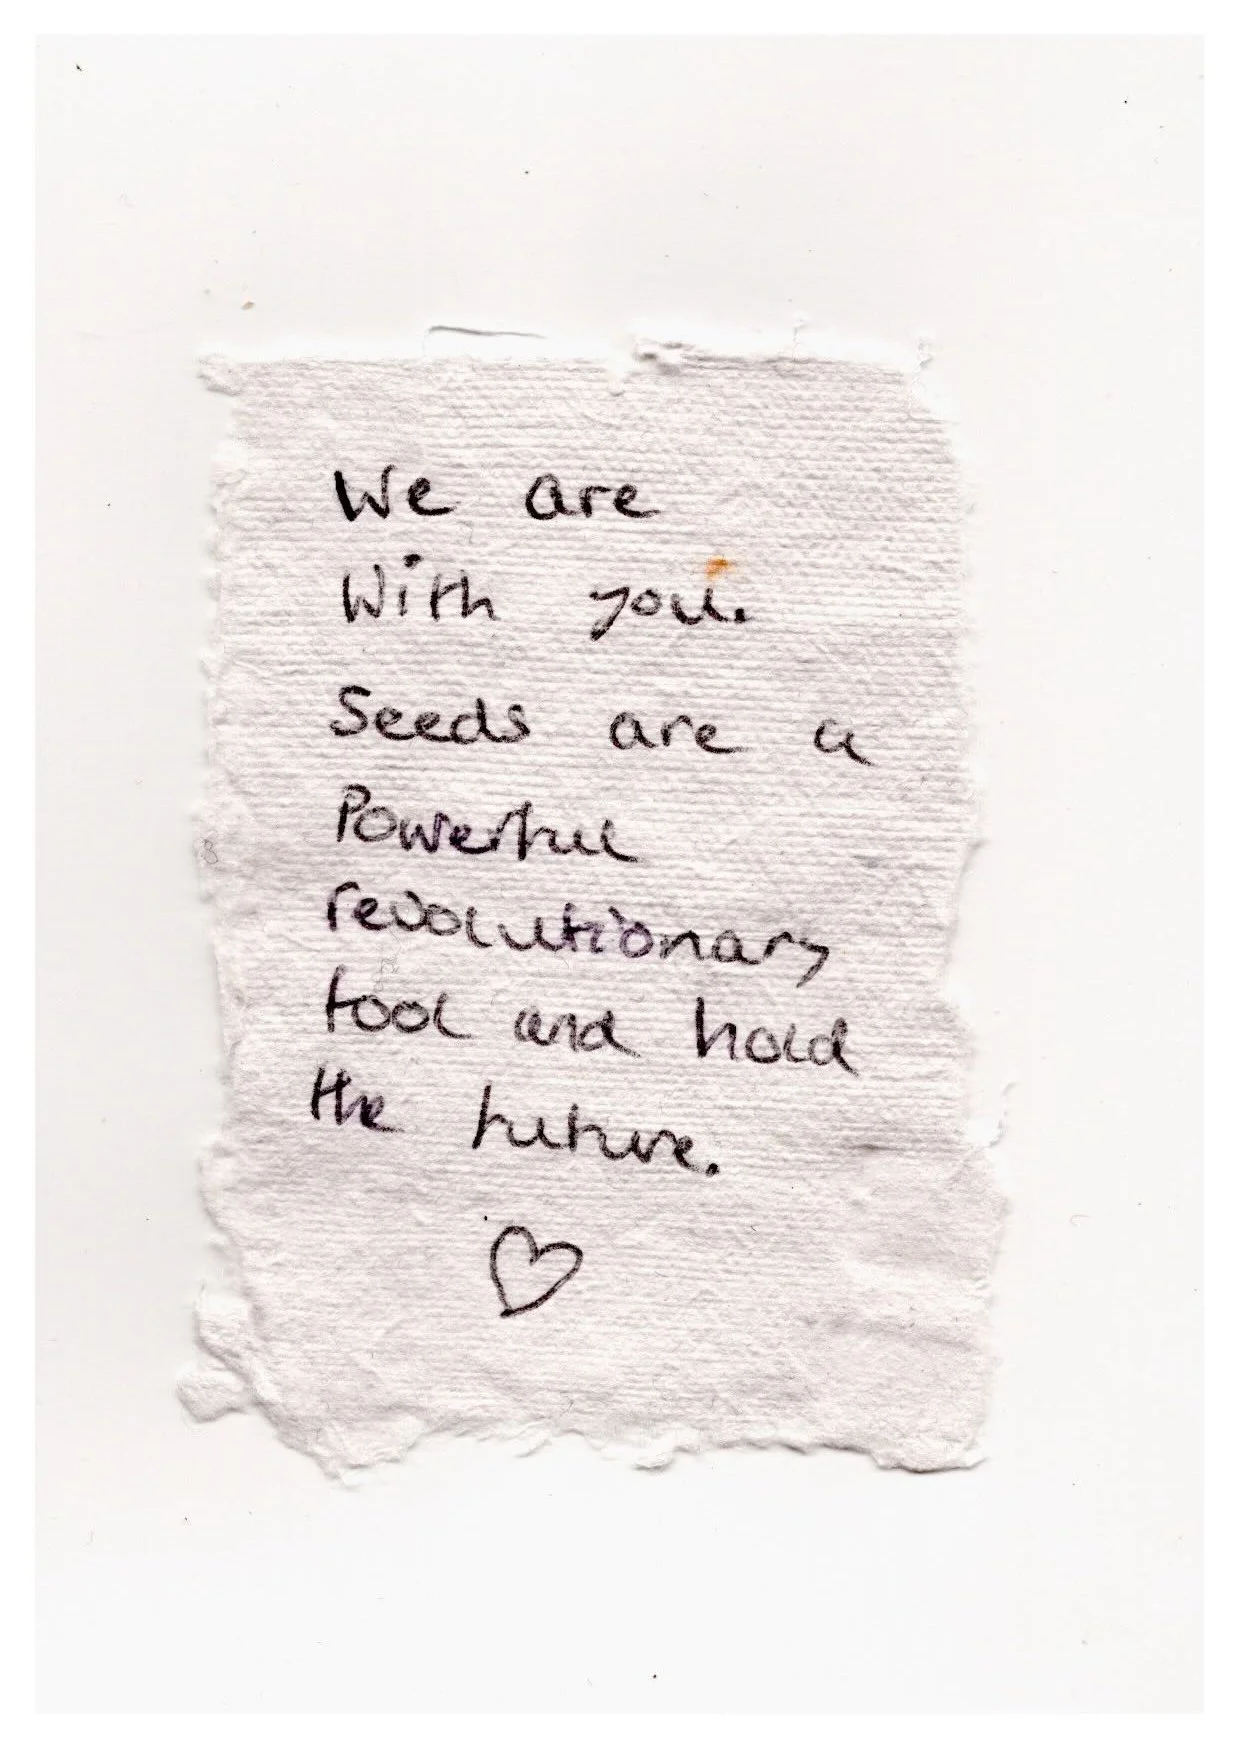 We are
With you.
Seeds are a
Powerful
revolutionary
tool and hold
the future.